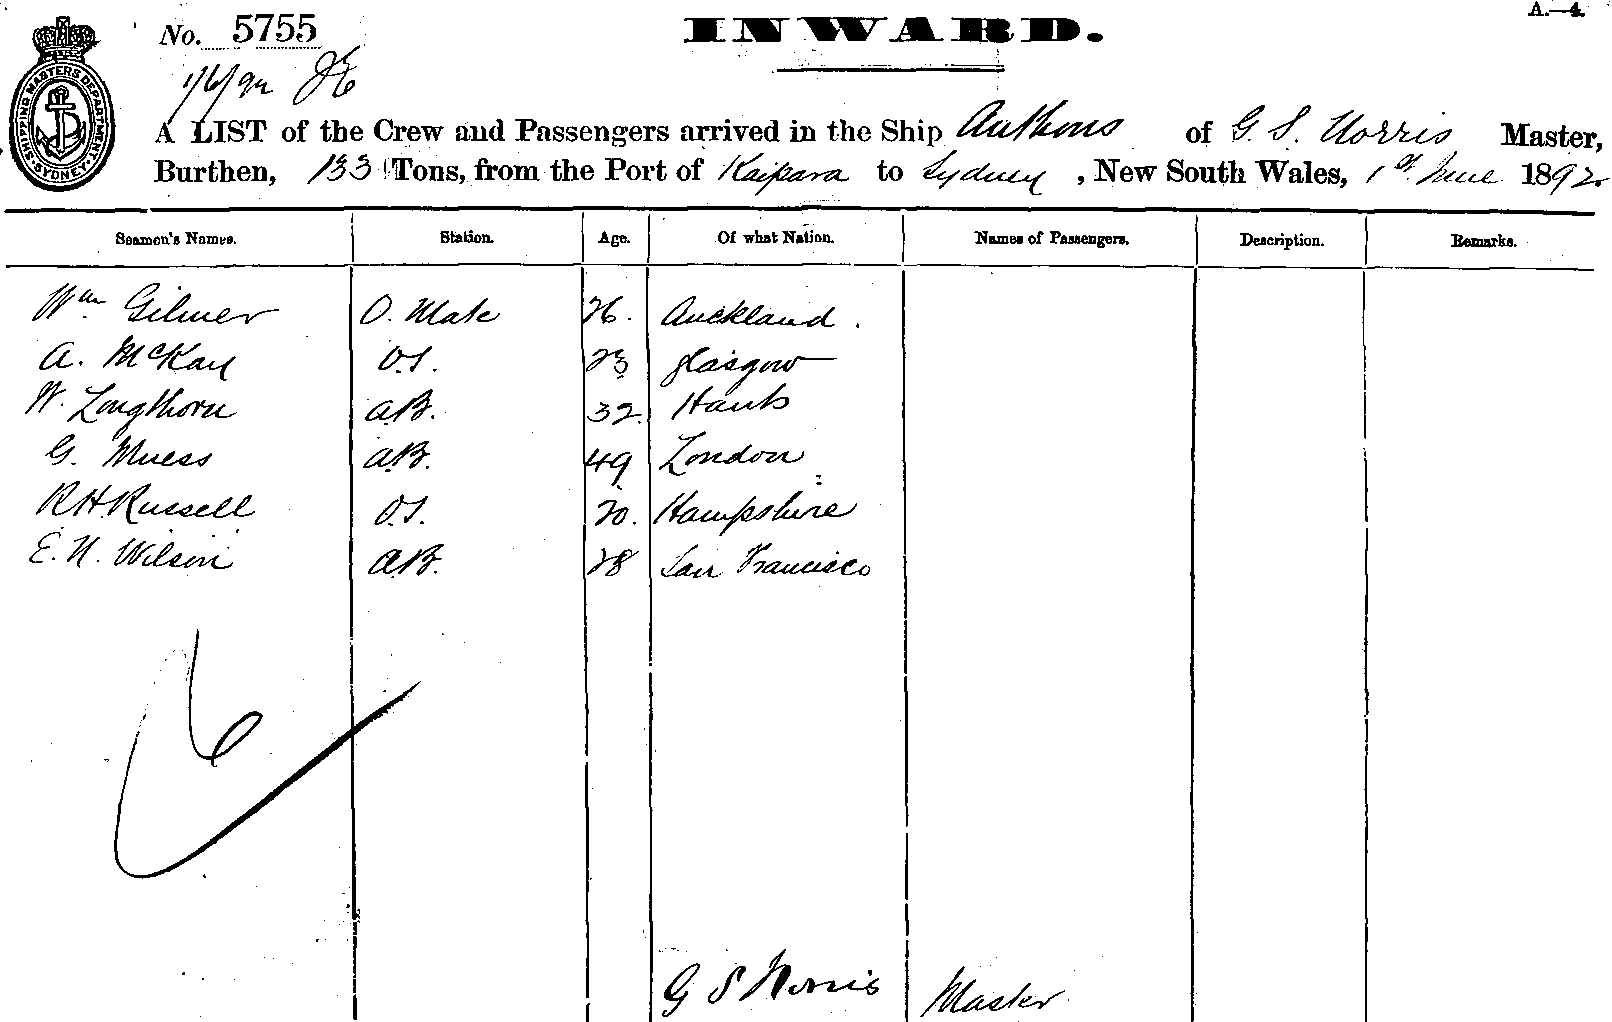 A.—4.
INWARD.
No. 5755
1/6/92
SHIPPING MASTERS DEPARTMENT SYDNEY
A LIST of the Crew and Passengers arrived in the Ship of G. S. Norris Master,
Burthen, 133 Tons, from the Port of Kaipara to Sydney, New South Wales, 1st June 1892
Seamen's Names. Station. Age. Of what Nation. Names of Passengers. Description. Remarks.
Wm Gilmer O. Mate 26. Auckland.
A. McKay O.S. 23 Glasgow
W. Longthorn A.B. 32 Hants
G. Muess A.B. 49 London
R H Russell O.S. 20. Hampshire
E. N. Wilson A.B. 28 San Francisco
6
G S Norris Master